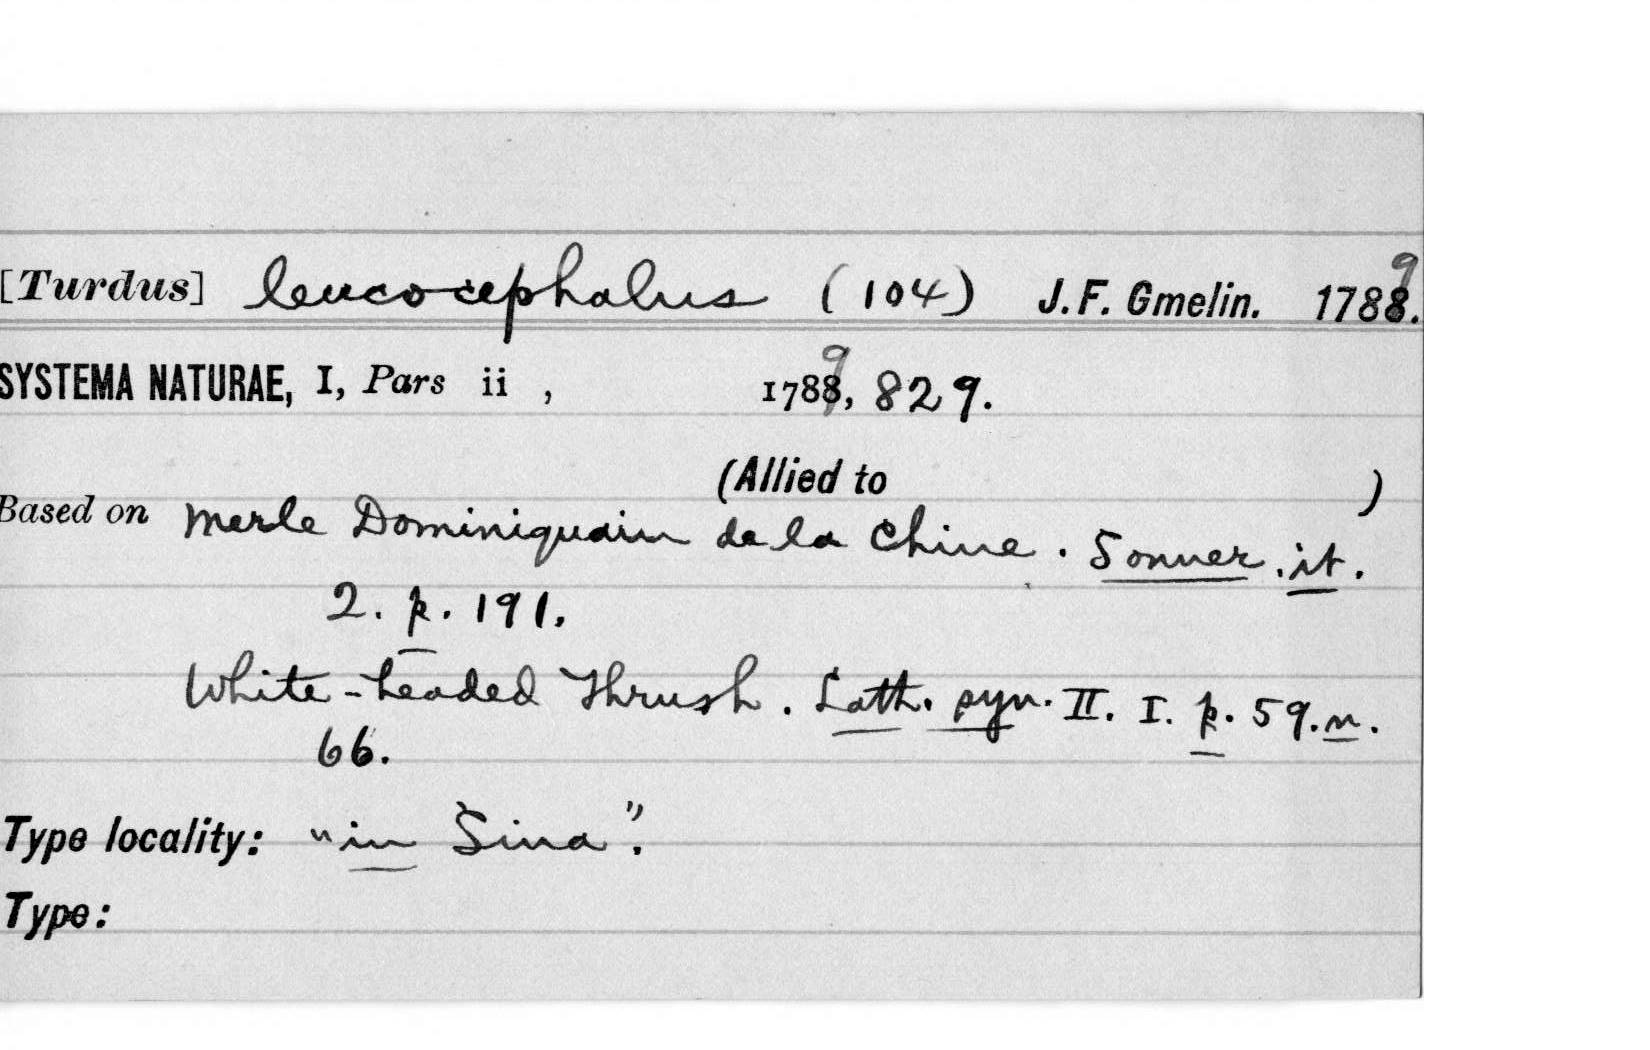 [Turdus] leucocephalus (104) J. F. Gmelin. 17889.
SYSTEMA NATURAE, I, Pars ii , 17889, 829.
(Allied to )
Based on Merle Dominiquain de la Chine. Sonner. it.
2. p. 191.
White-headed Thrush. Lath. syn. II. I. p. 59. n.
66.
Type locality: "in Sina".
Type: